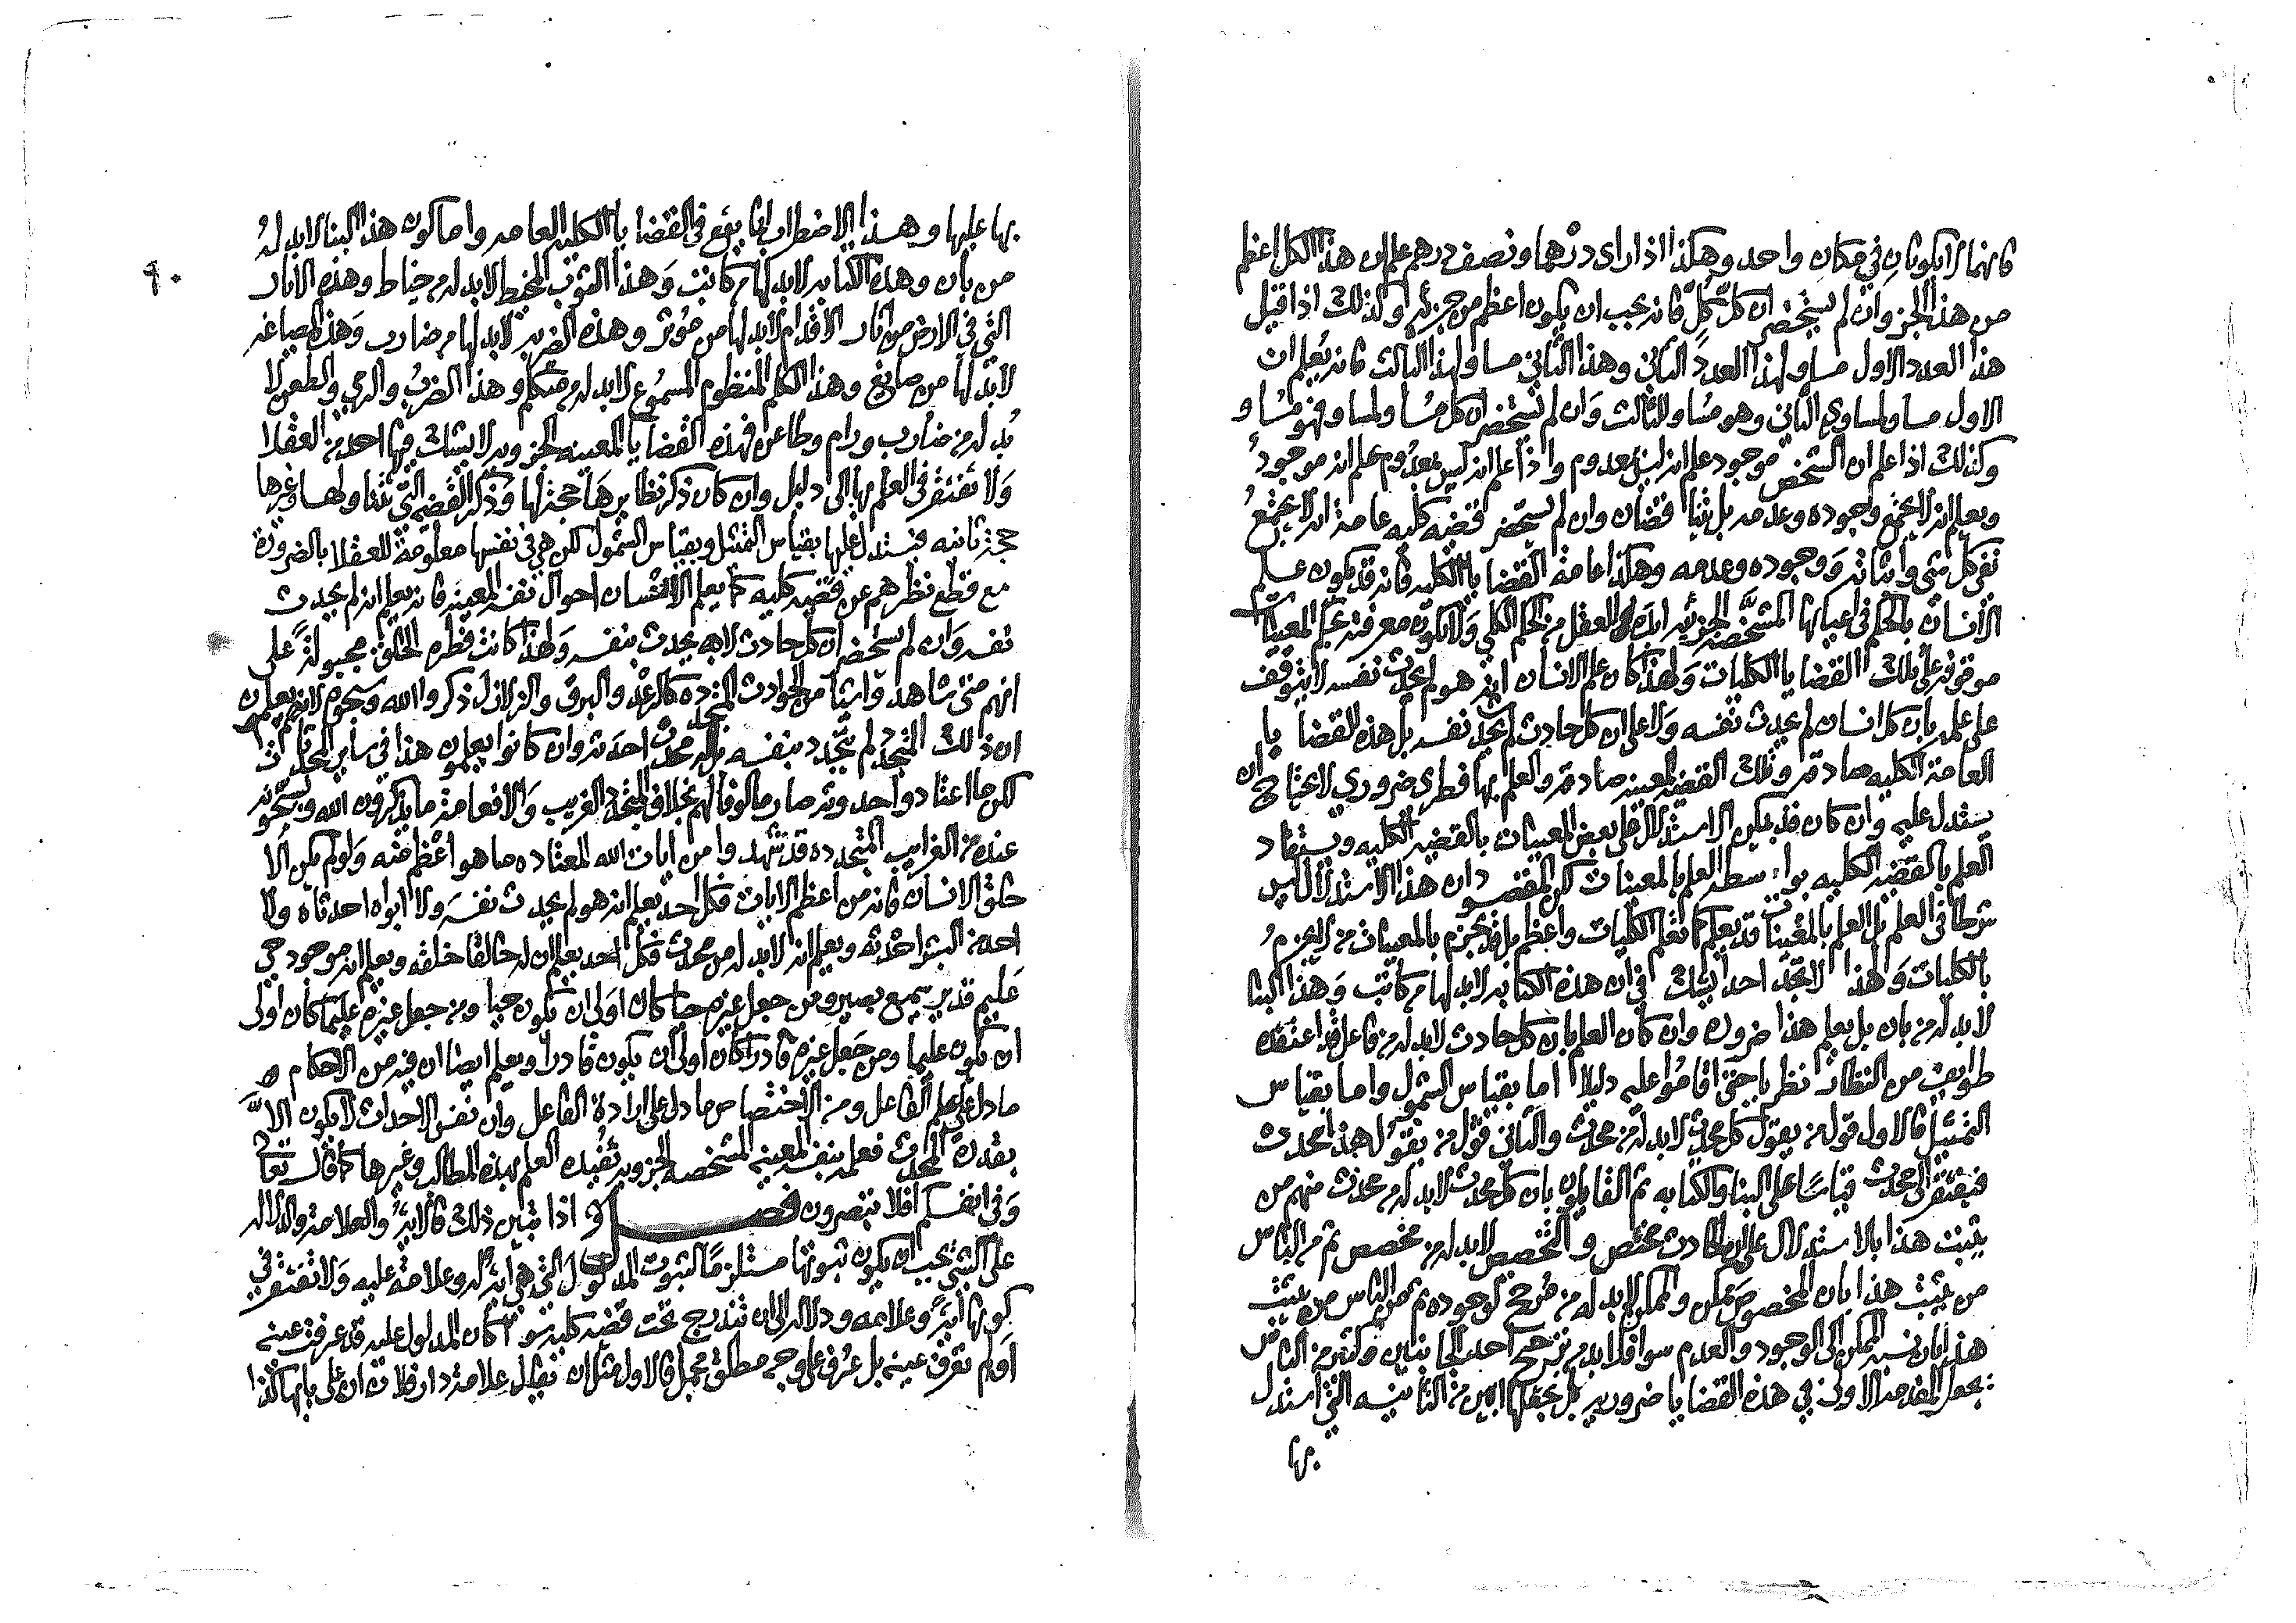 فانهما لا يكونان في مكان واحد وهكذا اذا راى درهما ونصف درهم علم ان هذا الكل اعظم
من هذا الجز وان لم يستحضر ان كل كل فانه يجب ان يكون اعظم من جزئه وكذلك اذا قيل
هذا العدد الاول مساو لهذا العدد الثاني وهذا الثاني مساو لهذا الثالث فانه يعلم ان
الاول مساو لمساوي الثاني وهو مساو للثالث وان لم يستحضر ان كل مساو لمساو فهو مساو
وكذلك اذا علم ان الشخص موجود علم انه ليس بمعدوم واذا علم انه ليس بمعدوم علم انه موجود
ويعلم انه لا يجتمع وجوده وعدمه بل يتناقضان وان لم يستحضر قضيه كليه عامة انه لا يجتمع
نفي كل شي واثباته ووجوده وعدمه وهكذا عامة القضايا الكليه فانه قد يكون علم
الانسان بالحكم في اعيانها المشخصه الجزئيه ابده للعقل من الحكم الكلي ولا يكون معرفته بحكم المعينات
موقوفه على تلك القضايا الكليات ولهذا كان علم الانسان انه هو لم يحدث نفسه لا يتوقف
على علمه بان كل انسان لم يحدث نفسه ولا على ان كل حادث لم يحدث نفسه بل هذه القضايا
العامة الكليه صادقه وتلك القضيه المعينه صادقه والعلم بها فطري ضروري لا يحتاج ان
يستدل عليه وان كان قد يمكن الاستدلال على بعض المعينات بالقضيه الكليه ويستفاد
العلم بالقضيه الكليه بواسطه العلم بالمعينات لكن المقصود ان هذا الاستدلال ليس
شرطا في العلم بل العلم بالمعينات قد يعلم كما تعلم الكليات واعظم بل قد يجزم بالمعينات من لا يجزم
بالكليات ولهذا لا تجد احدا يشك في ان هذه الكتابه لابد لها من كاتب وهذا البنا
لابد له من بان بل يعلم هذا ضروره وان كان العلم بان كل حادث لابد له من فاعل قد اعتقده
طوايف من النظار نظريا حتى اقاموا عليه دليلا اما بقياس الشمول واما بقياس
التمثيل فالاول قول من يقول كل محدث لابد له من محدث والثاني قول من يقول هذا محدث
فيفتقر الى محدث قياسا على البنا والكتابه ثم القايلون بان كل محدث لابد له من محدث منهم من
يثبت هذا بالاستدلال على ان الحادث مختص والتخصيص لابد له من مخصص ثم من الناس
من يثبت هذا بان المخصوص ممكن والممكن لابد له من مرجح لوجوده ثم من الناس من يثبت
هذا بان نسبة الممكن الى الوجود والعدم سوا فلابد من ترجيح احد الجانبين وكثير من الناس
يجعل المقدمة الاولى في هذه القضايا ضروريه بل يجعلها ابين من الثانيه التي استدل
بها
٩٠
بها عليها وهذا الاضطراب انما يقع في القضايا الكليه العامه واما كون هذا البنا لابد له
من بان وهذه الكتابه لابد لها من كاتب وهذا الثوب المخيط لابد له من خياط وهذه الاثار
التي في الارض من اثار الاقدام لابد لها من موثر وهذه الضربه لابد لها من ضارب وهذه الصباغه
لابد لها من صابغ وهذا الكلام المنظوم المسموع لابد له من متكلم وهذا الضرب والرمي والطعن لا
بد له من ضارب ورام وطاعن فهذه القضايا المعينه الجزويه لا يشك فيها احد من العقلا
ولا تفتقر في العلم بها الى دليل وان كان ذكر نظايرها حجة لها وذكر القضيه التي تتناولها وغيرها
حجة ثانيه فيستدل عليها بقياس التمثيل وبقياس الشمول لكن هي في نفسها معلومة للعقلا بالضرورة
مع قطع نظرهم عن قضيه كليه كما يعلم الانسان احوال نفسه المعينه فانه يعلم انه لم يحدث
نفسه وان لم يستحضر ان كل حادث لا يحدث بنفسه ولهذا كانت فطره الخلق مجبولة على
انهم متى شاهدوا شيا من الحوادث المتجدده كالرعد والبرق والزلازل ذكروا الله وسبحوه لانهم يعلمون
ان ذلك المتجدد لم يتجدد بنفسه بل له محدث احدثه وان كانوا يعلمون هذا في ساير المحدثات
لكن ما اعتادوا حدوثه صار مالوفا لهم بخلاف المتجدد الغريب والا فعامة ما يذكرون الله ويسبحونه
عنده من الغرايب المتجدده قد شهدوا من ايات الله المعتاده ما هو اعظم منه ولو لم يكن الا
خلق الانسان فانه من اعظم الايات فكل احد يعلم انه هو لم يحدث نفسه ولا ابواه احدثاه ولا
احد من البشر احدثه ويعلم انه لابد له من محدث فكل احد يعلم ان له خالقا خلقه ويعلم انه موجود حي
عليم قدير سميع بصير ومن جعل غيره حيا كان اولى ان يكون حيا ومن جعل غيره عليما كان اولى
ان يكون عليما ومن جعل غيره قادرا كان اولى ان يكون قادرا ويعلم ايضا ان فيه من الاحكام
ما دل على علم الفاعل ومن الاختصاص ما دل على ارادة الفاعل وان نفس الاحداث لا يكون الا
بقدرة المحدث فعلمه بنفسه المعينه المشخصه الجزويه تفيده العلم بهذه المطالب وغيرها كما قال تعالى
وفي انفسكم افلا تبصرون فصل واذا تبين ذلك فالايه والعلامة والدلاله
على الشي يجب ان يكون ثبوتها مستلزما لثبوت المدلول التي هي ايه له وعلامة عليه ولا تفتقر في
كونها اية وعلامه ودلاله الى ان تندرج تحت قضيه كليه سوا كان المدلول عليه قد عرفت عينه
او لم تعرف عينه بل عرف على وجه مطلق مجمل فالاول مثل ان يقال علامة دار فلان ان على بابها كذا